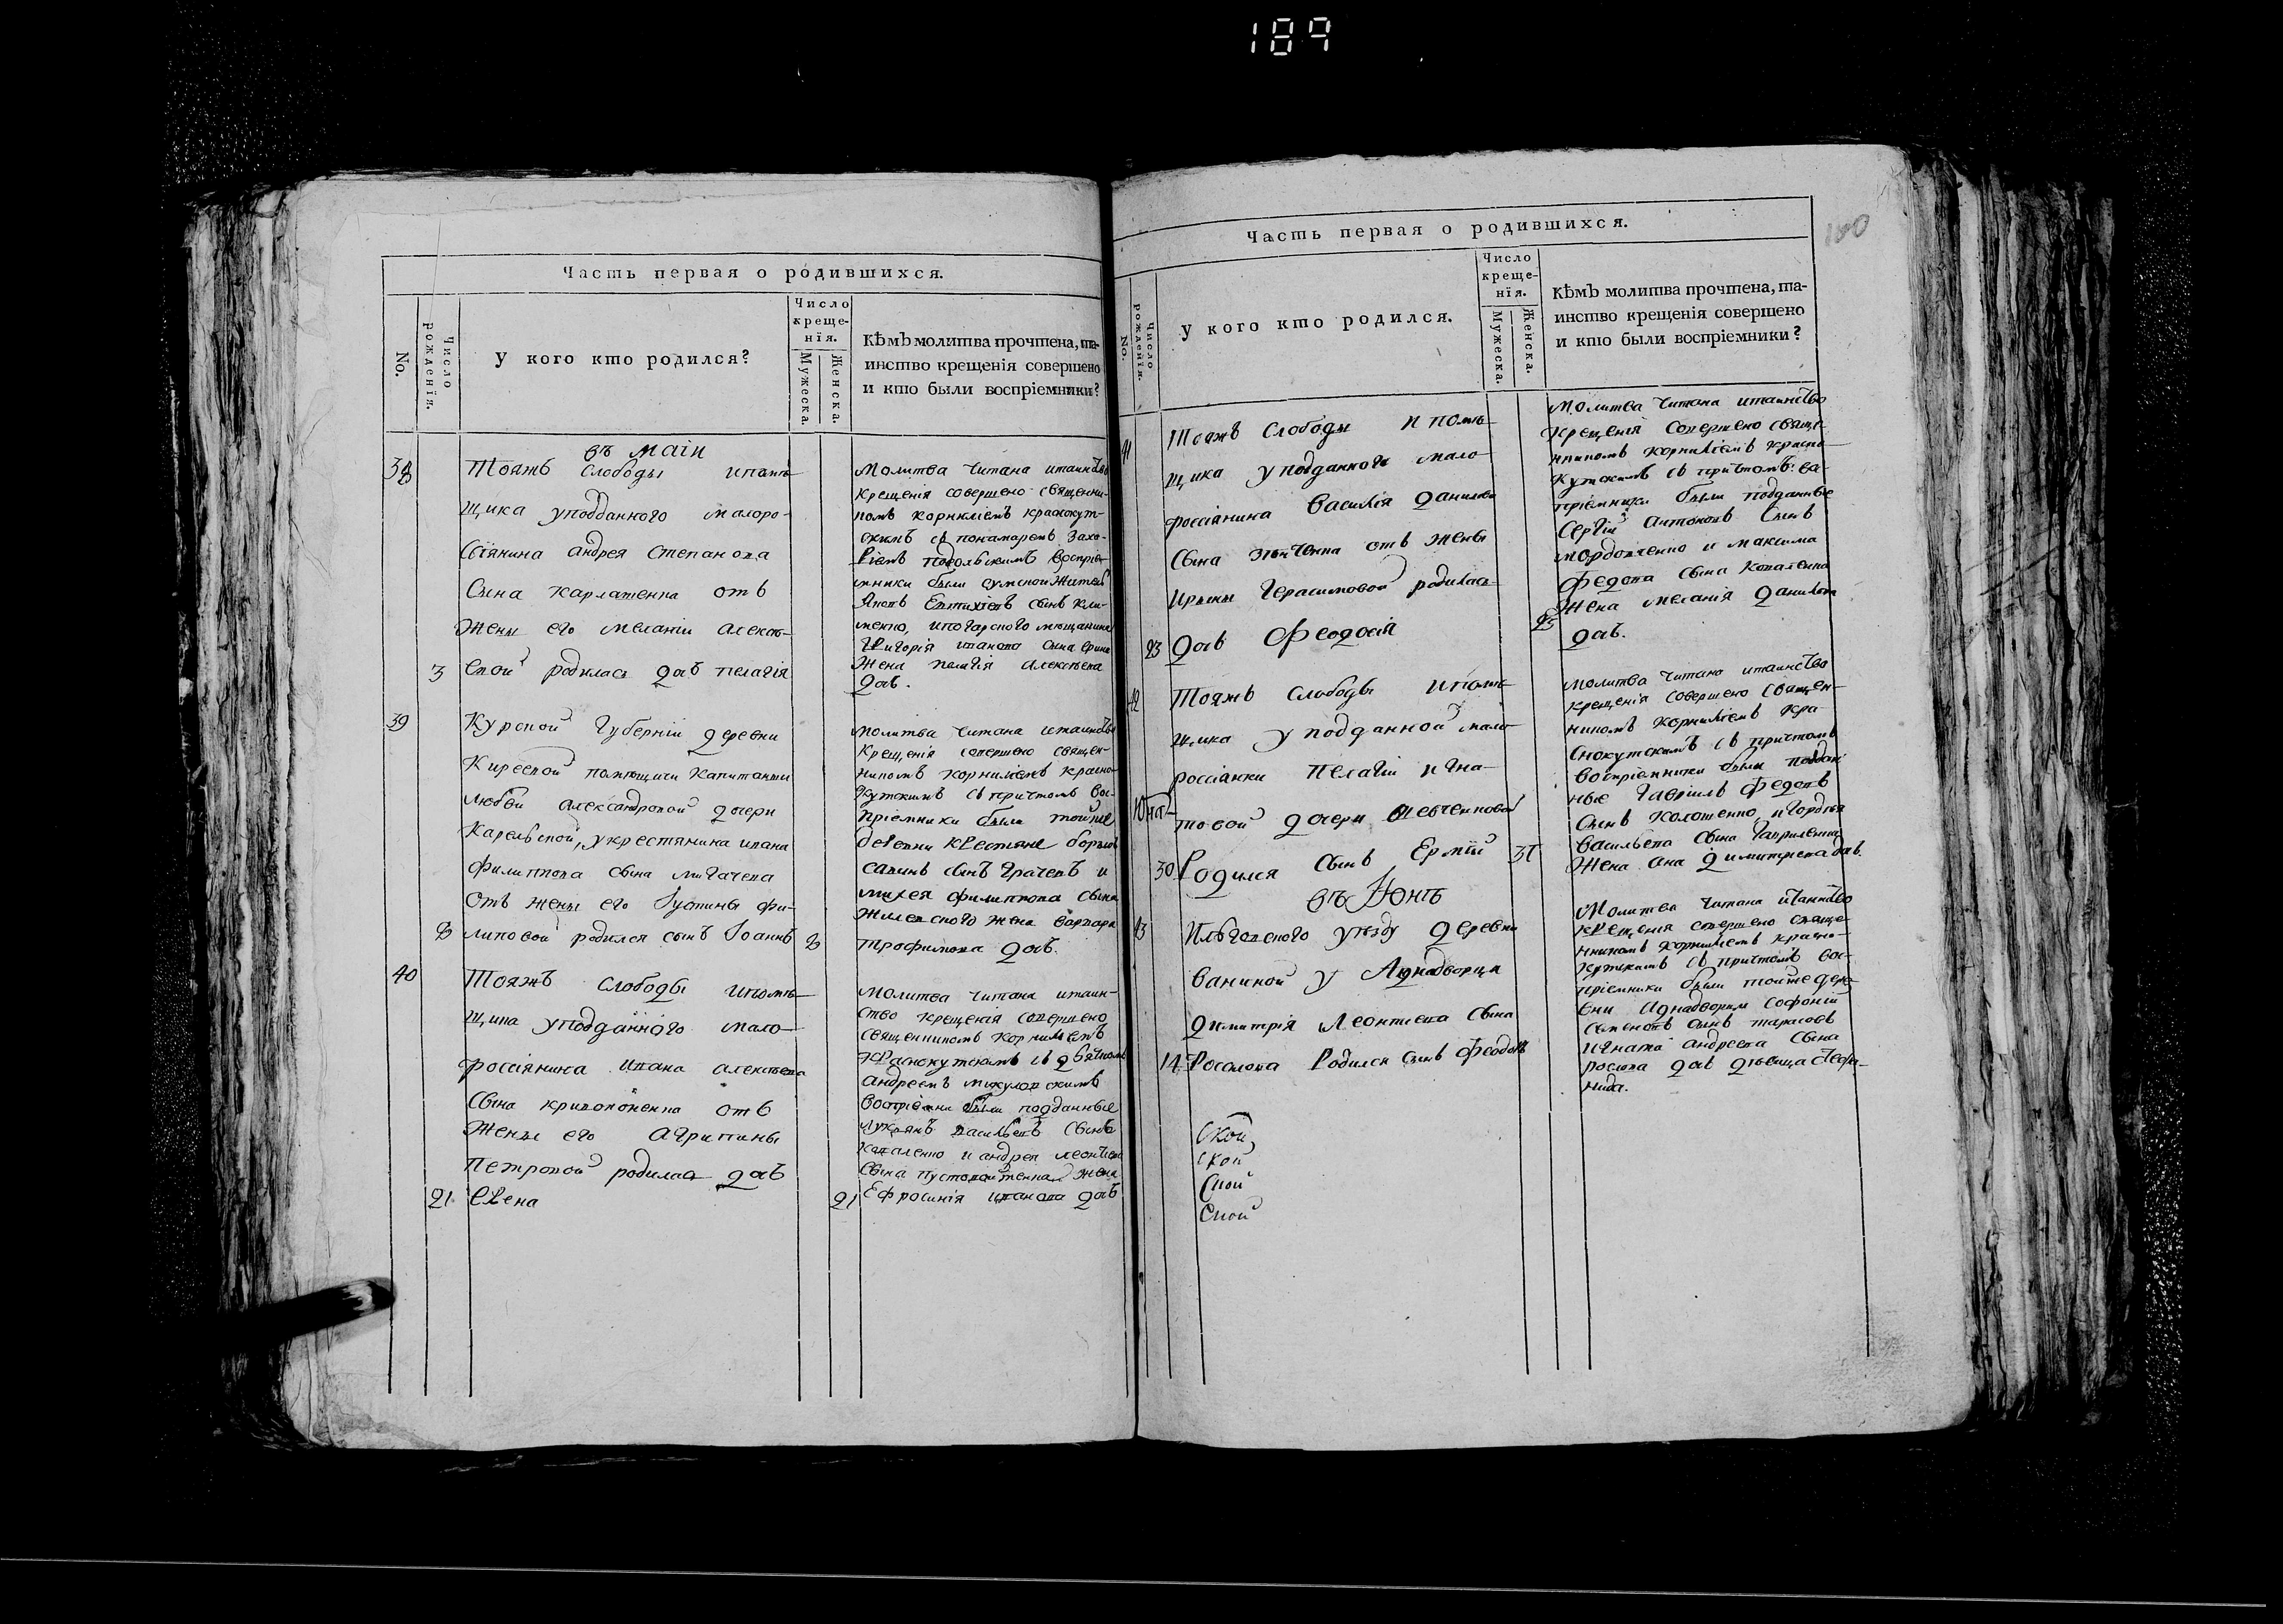 189
Часть первая о родившихся.
No.
Число рожденія.
у кого кто родился?
Число креще-
нія.
Мужеска.
Женска.
Кѣмъ молитва прочтена, та-
инство крещенія совершено
и кто были воспріемники?
въ маіи
38
Тояжъ слободы ипомѣ-
щика уподданного малоро-
сіянина андрея степанова
сына карпатенка отъ
жены его меланіи алексѣ-
3
евой родилась дщь пелагія
молитва читана итаинство
крещенія совершено священни-
комъ корниліемъ краснокут-
скимъ съ понамаремъ заха-
ріемъ подольскимъ воспріе-
мники были сумской житель
григорія иванова сына
жена пелагія алексѣева
дщь.
39
Курской губерніи деревни
Киреевой помѣщици капитанши
любви александровой дочери
Карельской, укрестянина ивана
филиппова сына мигачева
отъ жены его Іустины фи-
8
липовой родился сынъ Іоаннъ
8
молитва читана итаинство
крещенія совершено священ-
никомъ корниліемъ красно-
кутскимъ съ причтомъ вос-
пріемники были тойже
деревни крестяне
савинъ сынъ грачевъ и
михея филиппова сына
жилевского жена варвара
трофимова дщь.
40
Тояжъ слободы ипомѣ-
щика уподданного мало-
россіянина ивана алексѣева
сына кривопоненка отъ
жены его агрипины
петровой родилась дщь
21
Елена
21
молитва читана итаин-
ство крещенія совершено
священникомъ корниліемъ
краснокутскимъ съ дьячкомъ
андреемъ
воспріемни были подданные
лукянъ васильевъ сынъ
коваленко и андрея леонтіева
сына жена
Ефросинія иванова дщь
Часть первая о родившихся.
100
No.
Число рожденія.
у кого кто родился.
Число
креще-
нія.
Мужеска.
Женска.
Кѣмъ молитва прочтена, та-
инство крещенія совершено
и кто были воспріемники?
41
Тояжъ слободы ипомѣ-
щика уподданного мало-
россіянина Василія данилова
сына отъ жены
Ирыны герасимовой родилась
23
дщь Феодосія
25
Молитва читана итаинство
крещенія совершено свяще-
нникомъ корниліемъ красно-
кутскимъ съ причтомъ вос-
пріемники были подданные
Сергій антоновъ сынъ
мордовченко и максима
федота сына коваленка
жена меланія данилова
дщь.
42
Тояжъ слободы ипомѣ-
щика уподданной мало-
россіянки пелагіи игна-
товой дочери шевченковой
30
Родился сынъ Ермій
31
молитва читана итаинство
крещенія совершено священ-
никомъ корниліемъ кра-
снокутскимъ съ причтомъ
воспріемники были поддан
ные Гавріилъ федотъ
сынъ колошенко, игордѣя
васильева сына гавриленка
жена ана димитрева дщь.
въ Іюнѣ
43
Ильговского уѣзду деревни
Ваниной у Аднадворца
димитрія Леонтіева сына
14
Росалова Родился сынъ Феодоръ
Молитва читана итаинство
крещенія совершено свяще-
нникомъ корниліемъ красно-
кутскимъ съ причтомъ вос-
пріемники были тойже дере-
вни Аднадворцы Софоній
семеновъ сынъ тарасовъ
игната андреева сына
росова дщь дѣвица Стефа-
нида.
ской
ской
Сной
Сной